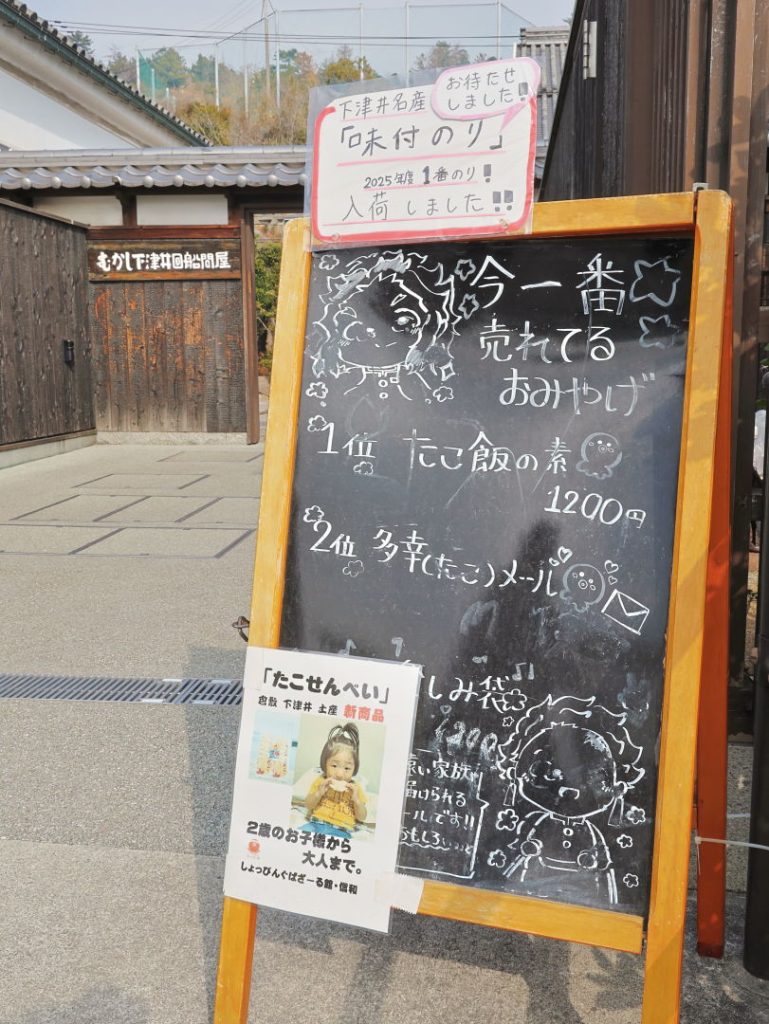 お待たせ
しました!
下津井名産
「味付のり」
2025年度 1番のり!
入荷しました!!
むかし下津井回船問屋
今一番
売れてる
おみやげ
1位 たこ飯の素
1200円
2位 多幸(たこ)メール
しみ袋
「たこせんべい」
倉敷 下津井 土産 新商品
2歳のお子様から
大人まで。
しょっぴんぐばざーる館・信和
遠い家族
届けられる
ールです!!
おもしろい